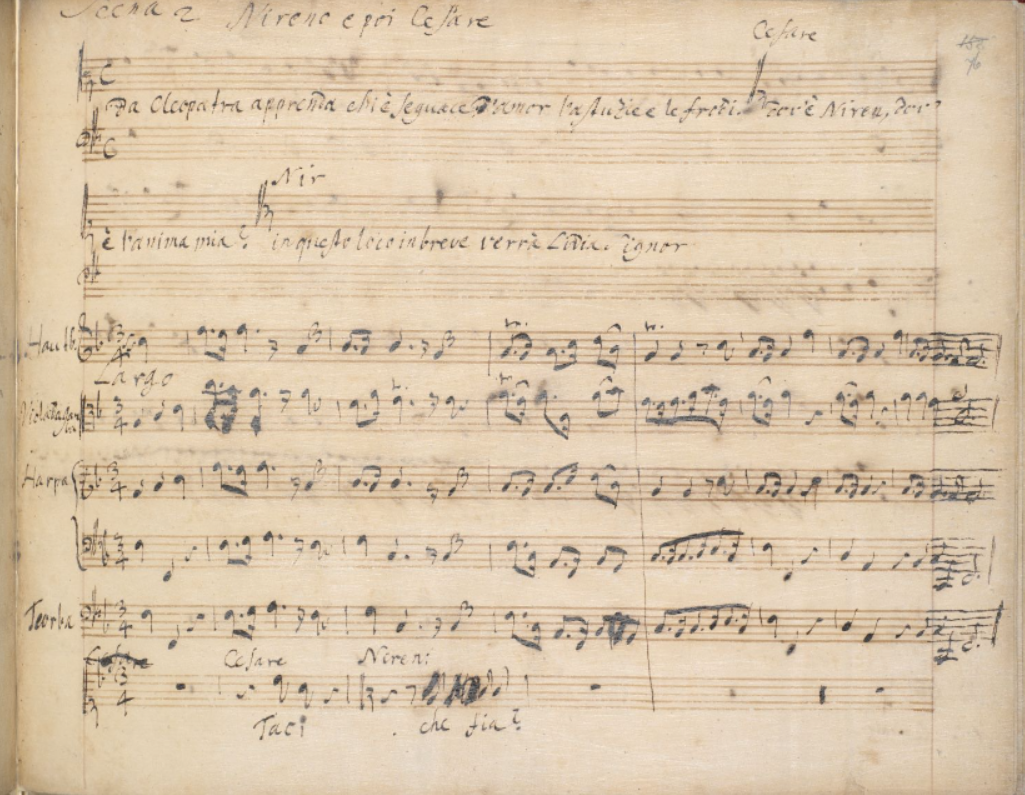 Scena 2 Nireno e poi Cesare
Cesare
Da Cleopatra apprenda chi è seguace d'amor l'astuzie e le frodi. Dov'è Niren, dov'
Nir
è l'anima mia? in questo loco in breve verrà Lidia. Signor
Hautb.
Largo
Viola da gam
ba
Harpa
Teorba
Cesare Cesare Niren:
Taci che fia?